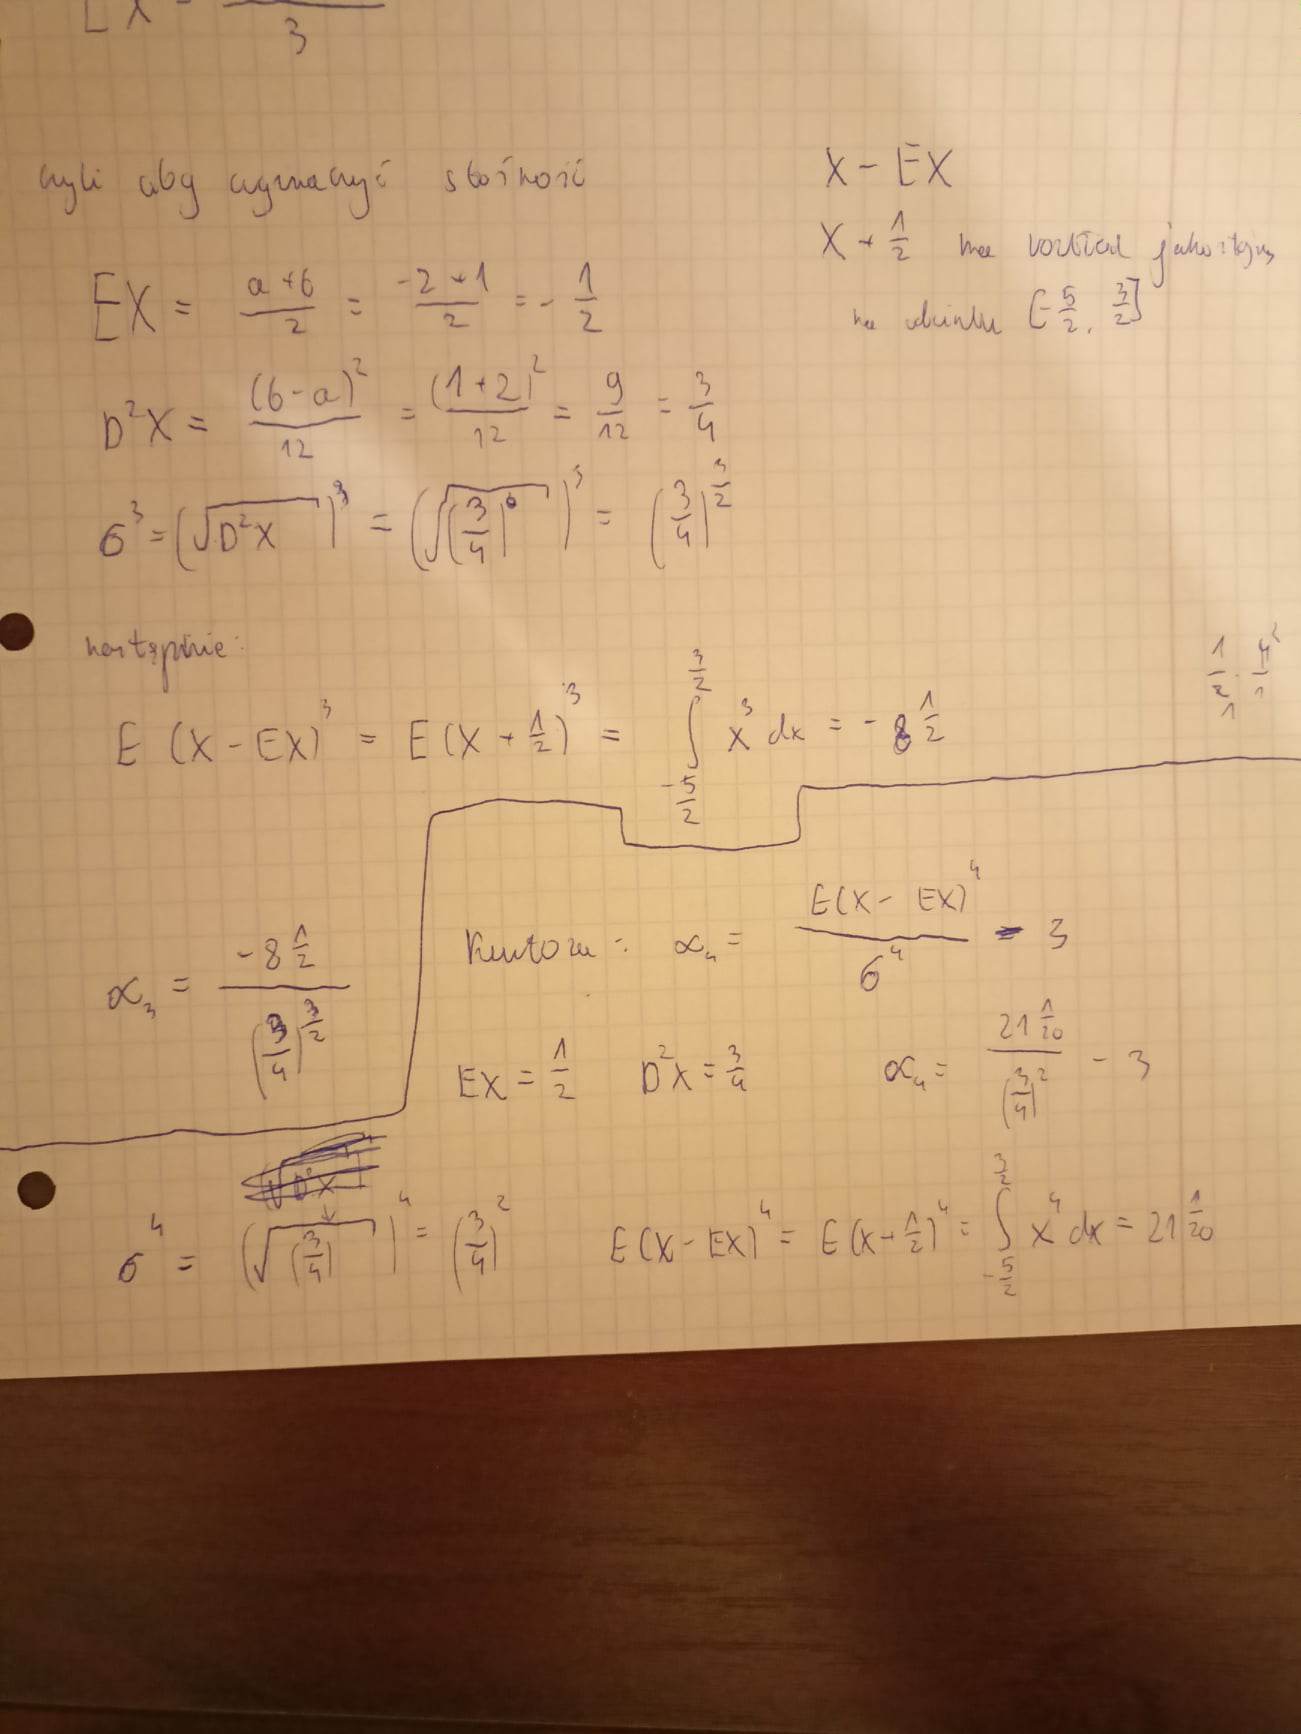 EX = ——— 3
czyli aby wyznaczyć skośność
X - EX
X + 1/2 ma rozkład jednostajny
na odcinku [-5/2, 3/2]
EX = (a+b)/2 = (-2+1)/2 = -1/2
D²X = (b-a)²/12 = (1+2)²/12 = 9/12 = 3/4
σ³ = (√D²X)³ = (√(3/4))³ = (3/4)^(3/2)
następnie:
E(X - EX)³ = E(X + 1/2)³ = ∫_{-5/2}^{3/2} x³ dx = -8 1/2
α₃ = (-8 1/2)/(3/4)^(3/2)
Kurtoza: α₄ = E(X - EX)⁴/σ⁴ - 3
EX = 1/2 D²X = 3/4 α₄ = (21 1/20)/(3/4)² - 3
σ⁴ = (√(3/4))⁴ = (3/4)²
E(X - EX)⁴ = E(X + 1/2)⁴ = ∫_{-5/2}^{3/2} x⁴ dx = 21 1/20